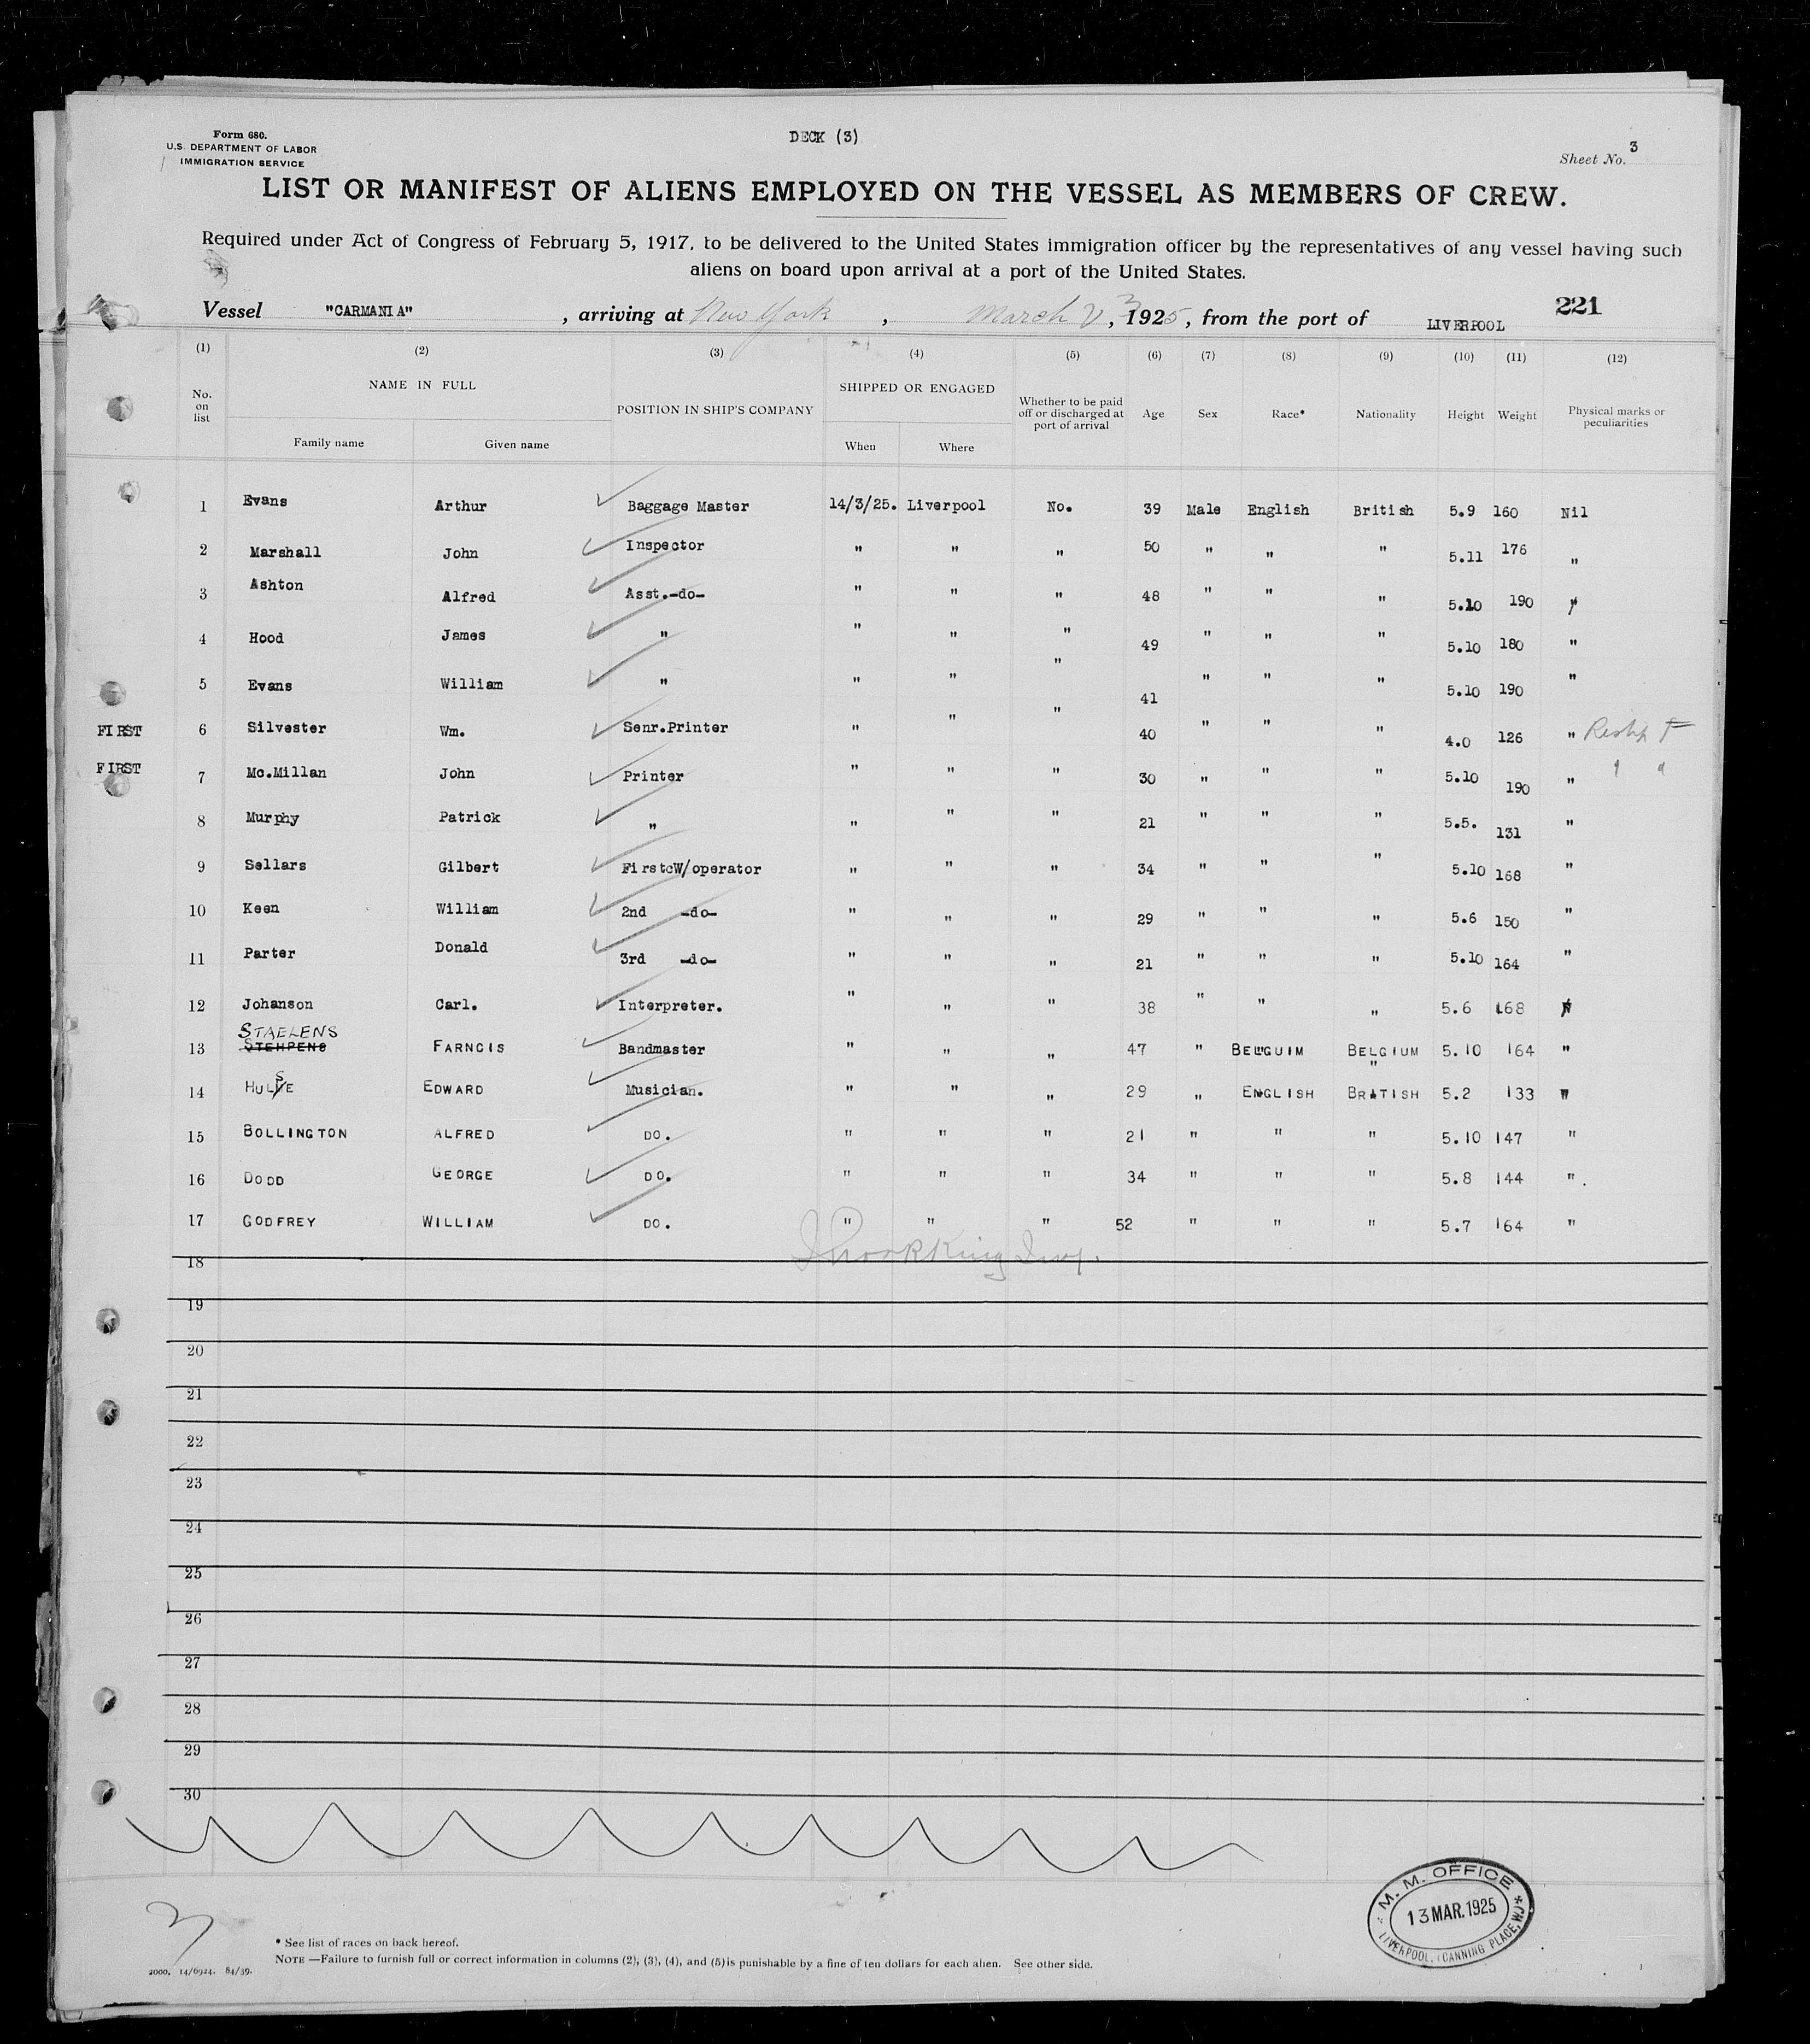 Form 680.
U.S. DEPARTMENT OF LABOR
IMMIGRATION SERVICE
DECK (3)
Sheet No. 3
LIST OR MANIFEST OF ALIENS EMPLOYED ON THE VESSEL AS MEMBERS OF CREW.
Required under Act of Congress of February 5, 1917, to be delivered to the United States immigration officer by the representatives of any vessel having such
aliens on board upon arrival at a port of the United States.
221
Vessel "CARMANIA" , arriving at New York , March 23, 1925, from the port of LIVERPOOL
(1) (2) (3) (4) (5) (6) (7) (8) (9) (10) (11) (12)
No. on list NAME IN FULL Family name Given name POSITION IN SHIP'S COMPANY SHIPPED OR ENGAGED When Where Whether to be paid off or discharged at port of arrival Age Sex Race* Nationality Height Weight Physical marks or peculiarities
1 Evans Arthur Baggage Master 14/3/25. Liverpool No. 39 Male English British 5.9 160 Nil
2 Marshall John Inspector " " " 50 " " " 5.11 176 "
3 Ashton Alfred Asst.-do- " " " 48 " " " 5.10 190 "
4 Hood James " " " " 49 " " " 5.10 180 "
5 Evans William " " " " 41 " " " 5.10 190 "
FIRST 6 Silvester Wm. Senr.Printer " " " 40 " " " 4.0 126 "
FIRST 7 Mc.Millan John Printer " " " 30 " " " 5.10 190 "
8 Murphy Patrick " " " " 21 " " " 5.5. 131 "
9 Sellars Gilbert FirstcW/operator " " " 34 " " " 5.10 168 "
10 Keen William 2nd -do- " " " 29 " " " 5.6 150 "
11 Parter Donald 3rd -do- " " " 21 " " " 5.10 164 "
12 Johanson Carl. Interpreter. " " " 38 " " " 5.6 168 "
STAELENS
13 STEHPENS FARNCIS Bandmaster " " " 47 " BELGUIM BELGIUM 5.10 164 "
14 HULSE EDWARD Musician. " " " 29 " ENGLISH BRITISH 5.2 133 "
15 BOLLINGTON ALFRED DO. " " " 21 " " " 5.10 147 "
16 DODD GEORGE DO. " " " 34 " " " 5.8 144 " .
17 GODFREY WILLIAM DO. " " " 52 " " " 5.7 164 "
18
19
20
21
22
23
24
25
26
27
28
29
30
M. M. OFFICE
13 MAR. 1925
LIVERPOOL, (CANNING PLACE, W.)
3
* See list of races on back hereof.
NOTE —Failure to furnish full or correct information in columns (2), (3), (4), and (5) is punishable by a fine of ten dollars for each alien. See other side.
2000. 14/6924. 84/39.